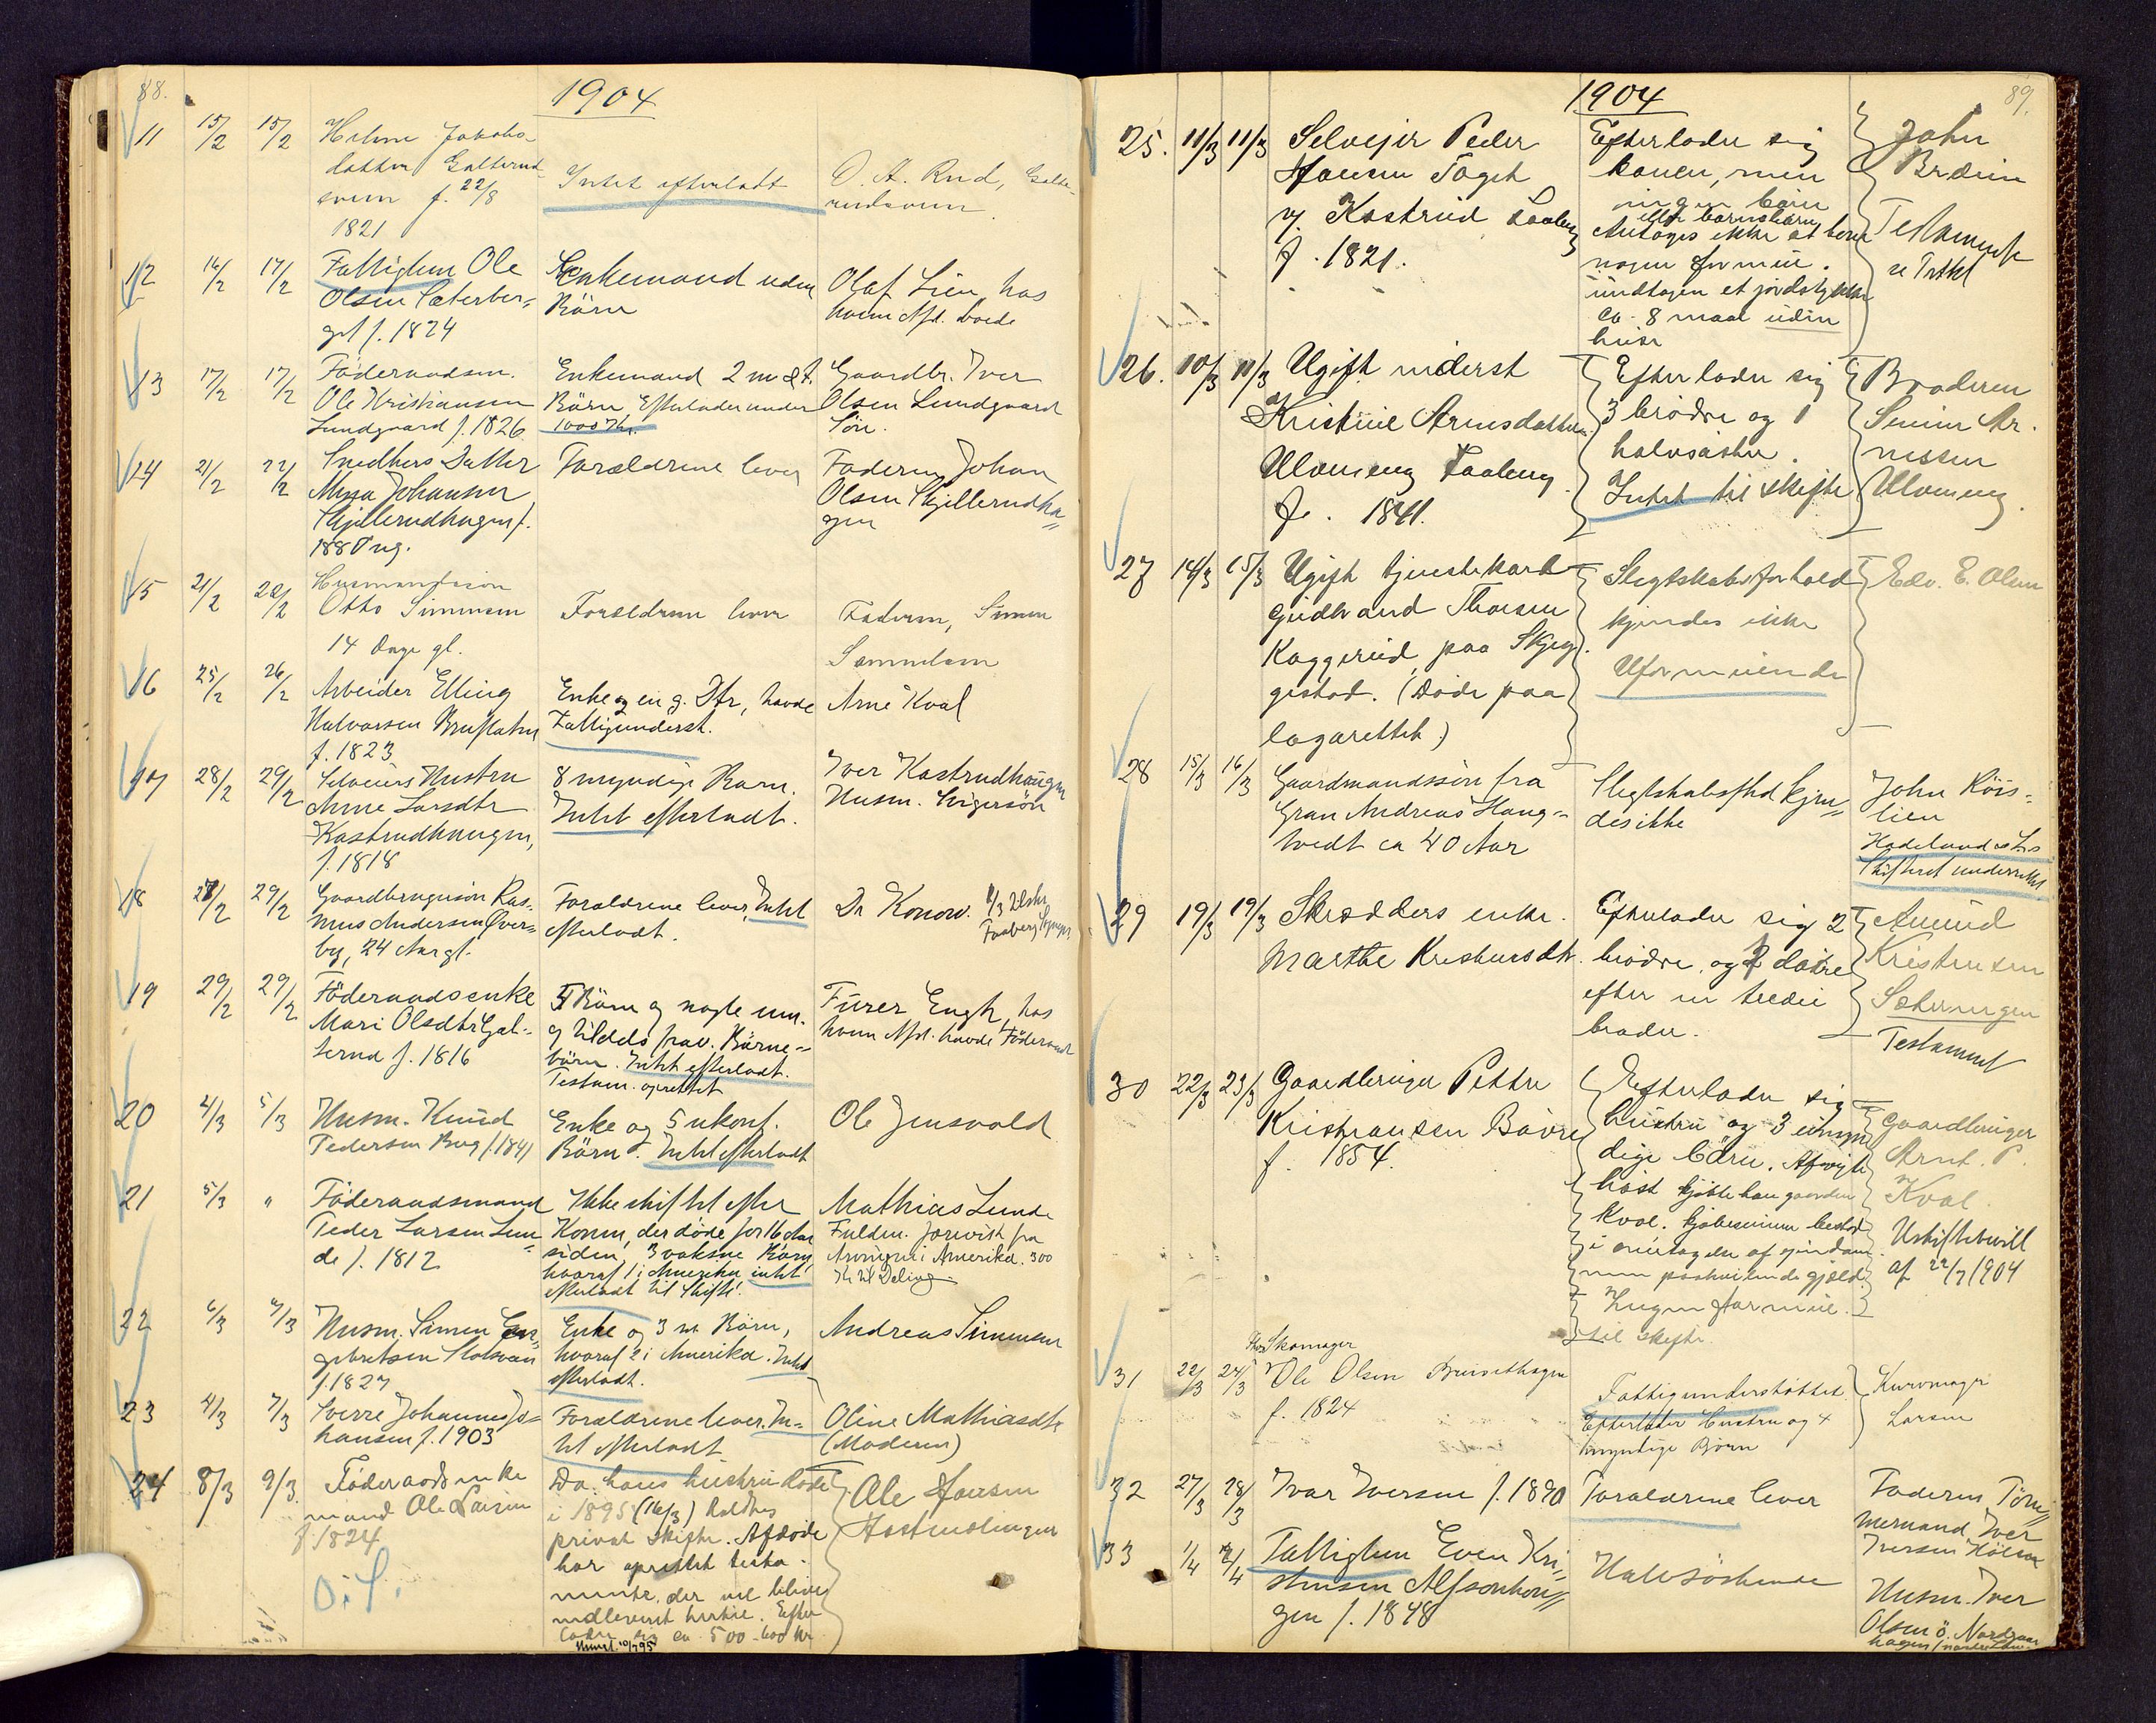 88.
1904
11 15/2 15/2 Helene Jakobs-
datter Galterud-
sveen f. 22/8
1821
Intet efterladt
O. A. Rud, Galte-
rudsveen
12 16/2 17/2 Fattiglem Ole
Olsen Sæterber-
get f. 1824
Enkemand uden
Börn
Olaf Lien, hos
hvem Afd. boede
13 17/2 17/2 Föderaadsm.
Ole Kristiansen
Lundgaard f. 1826
Enkemand 2 m. &
Börn, Efterlader under
1000 Kr.
Gaardbr. Iver
Olsen Lundgaard
Sön.
14 21/2 22/2 Snedkers Datter
Johansen
Skjellerudhagen f.
188 ug.
Forældrene lever
Faderen, Johan
Olsen Skjellerudha-
gen
15 21/2 22/2 Husmandssön
Otto Simensen
14 Dage gl.
Forældrene lever
Faderen, Simen
16 25/2 26/2 Arbeider Elling
Halvorsen Bruflaten
f. 1823
Enke og en g. Dtr, havde
Fattigunderst.
Arne Kval
17 28/2 29/2 Selveiers Hustru
Anne Larsdtr
Kastrudhaugen,
f. 1818
8 myndige Barn.
Intet efterladt.
Iver Kastrudhaugen
Husm. Svigersön
18 27/2 29/2 Gaardbrugersön Ras-
mus Andersen Över-
by, 24 Aar gl.
Forældrene lever, Intet
efterladt.
Dr Konow.
19 29/2 29/2 Föderaadsenke
Mari Olsdtr Gal-
terud f. 1816
5 Börn og nogle um.
og tildels frav. Börne-
börn. Intet efterladt.
Testam. oprettet
Furer Engh, hos
hvem Afd. havde Föderaad
20 4/3 5/3 Husm. Knud
Pedersen Berg f. 1841
Enke og 5 ukonf.
Börn. Intet efterladt
Ole Jensvold
21 5/3 " Föderaadsmand
Peder Larsen Lun-
de f. 1812
Ikke skiftet efter
Konen, der döde for 16 Aar
siden, 3 voksne Börn,
hvoraf 1 i Amerika intet
efterladt til Skifte.
Mathias Lunde
Fuldm. forevist fra
Arvingen i Amerika. 300
Kr til Deling
22 6/3 7/3 Husm. Simen En-
gebretsen Slotsveen
f. 1827
Enke og 3 m. Börn,
hvoraf 2 i Amerika. Intet
efterladt.
Andreas Simensen
23 4/3 7/3 Sverre Johannes Jo-
hansen f. 1903
Forældrene lever. In-
tet efterladt
Oline Mathiasdtr
(Moderen)
24 8/3 9/3. Föderaads enke
mand Ole Larsen
f. 1824
O. S.
Da hans hustru döde
i 1895 (16/3) holdtes
privat skifte. Afdöde
har oprettet testa-
mente, der vil blive
indleveret hertil. Efter
lader sig ca 500-600 kr
Ole Hansen
89.
1904
25. 11/3 11/3 Selvejer Peder
Hansen Toget
v/ Kastrud Faaberg
f. 1821.
Efterlader sig
konen, men
ingen börn
eller barnebarn
Antages ikke at have
nogen formue.
undtagen et jordstykke
ca. 8 maal uden
huse
John
Bræin
Testamente
26. 10/3 11/3 Ugift inderst
Kristine Arnesdatter
Ulveneng Faaberg.
f. 1841.
Efterlader sig
3 brödre og 1
halvsöster.
Intet til skifte
Broderen
Simen Ar-
nesen
Ulveneng.
27 14/3 15/3 Ugift tjenestekarl
Gudbrand Thorsen
Kaggerud paa Skjeg-
gestad. (Döde paa
lazarettet)
Slegtskabsforhold
kjendes ikke
Uformuende
Edv. E. Olsen
28 15/3 16/3 Gaardmandssön fra
Gran Andreas Haug-
tvedt ca 40 Aar
Slegtskabsfhd kjen-
des ikke
John Röis-
lien
Hadeland & L.s
Skifteret underrettet
29 19/3 19/3 Skrædders enke.
Marthe Kristensdtr.
Efterlader sig 2
brödre, og 2 dötre
efter en tredie
broder.
Amund
Kristensen
Sæterengen
Testament
30 22/3 23/3 Gaardbruger Petter
Kristiansen Bövre
f. 1854.
Efterlader sig
hustru og 3 umyn
dige börn. Afvigte
höst kjöbte han gaarden
Kval. Kjöbesummen bestod
i overtagelse af eiendom-
men paahvilende gjæld.
Ingen formue
til skifte.
Gaardbruger
Arnt. P.
Kval.
Uskiftebevill
af 22/7 1904
31 22/3 24/3 Skomager
Ole Olsen Bruisethagen
f. 1824
Fattigunderstöttet
Efterlader Hustru og 4
myndige Börn
Kurvmager
Larsen
32 27/3 28/3 Ivar Iversen f. 1890
Forældrene lever
Faderen, Töm-
mermand Iver
Iversen
33 1/4 2/4 Fattiglem Even Kri-
stensen Alfsonhau-
gen f. 1848
Halvsöskende
Husm. Iver
Olsen ö. Nordgaar
hagen